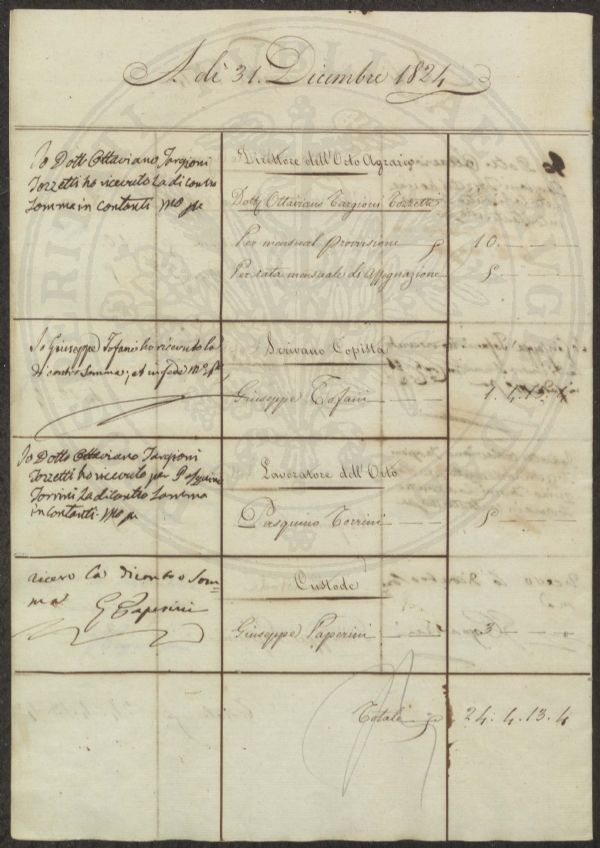 A. dì 31. Dicembre 1824
Io Dott Ottaviano Targioni
Tozzetti ho ricevuto la di contro
Somma in contanti mo pa
Direttore dell'Orto Agrario
Dottr Ottaviano Targioni Tozzetti
Per mensual provvisione 10. — —
Per rata mensuale di Assegnazione 5 — —
Io Giuseppe Tofani ho ricevuto la
di contro Somma, et in fede
Scrivano Copista
Giuseppe Tofani 1. 4. 13. 4
Io Dotto Ottaviano Targioni
Tozzetti ho ricevuto per Pasquino
Torrini la di contro Somma
in contanti mo pa
Lavoratore dell'Orto
Pasquino Torrini — — 5 — —
ricevo la di contro Som=
ma G Paperini
Custode
Giuseppe Paperini 3
Totale 24. 4. 13. 4